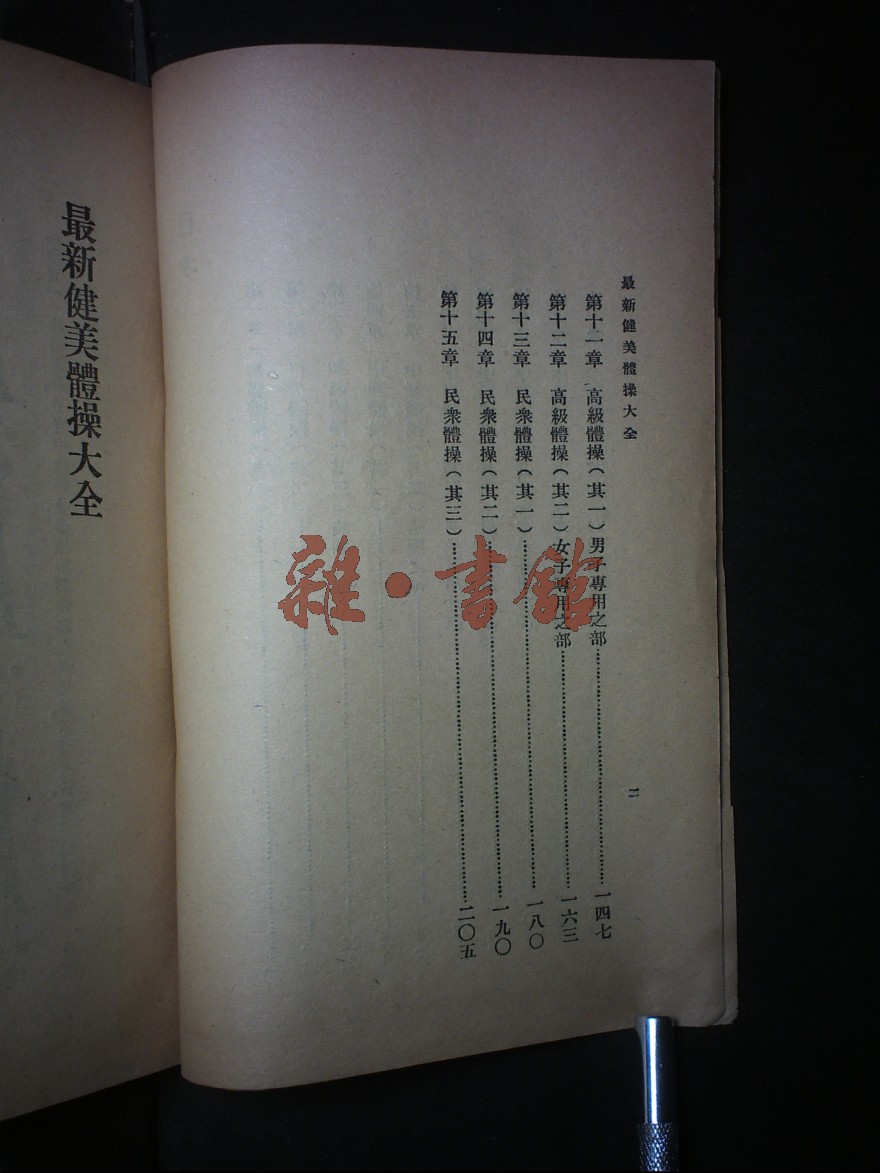 最新健美體操大全
第十一章　高級體操(其一)男子專用之部……一四七
第十二章　高級體操(其二)女子專用之部……一六三
第十三章　民衆體操(其一)……一八〇
第十四章　民衆體操(其二)……一九〇
第十五章　民衆體操(其三)……二〇五
二
最新健美體操大全
雜·書館